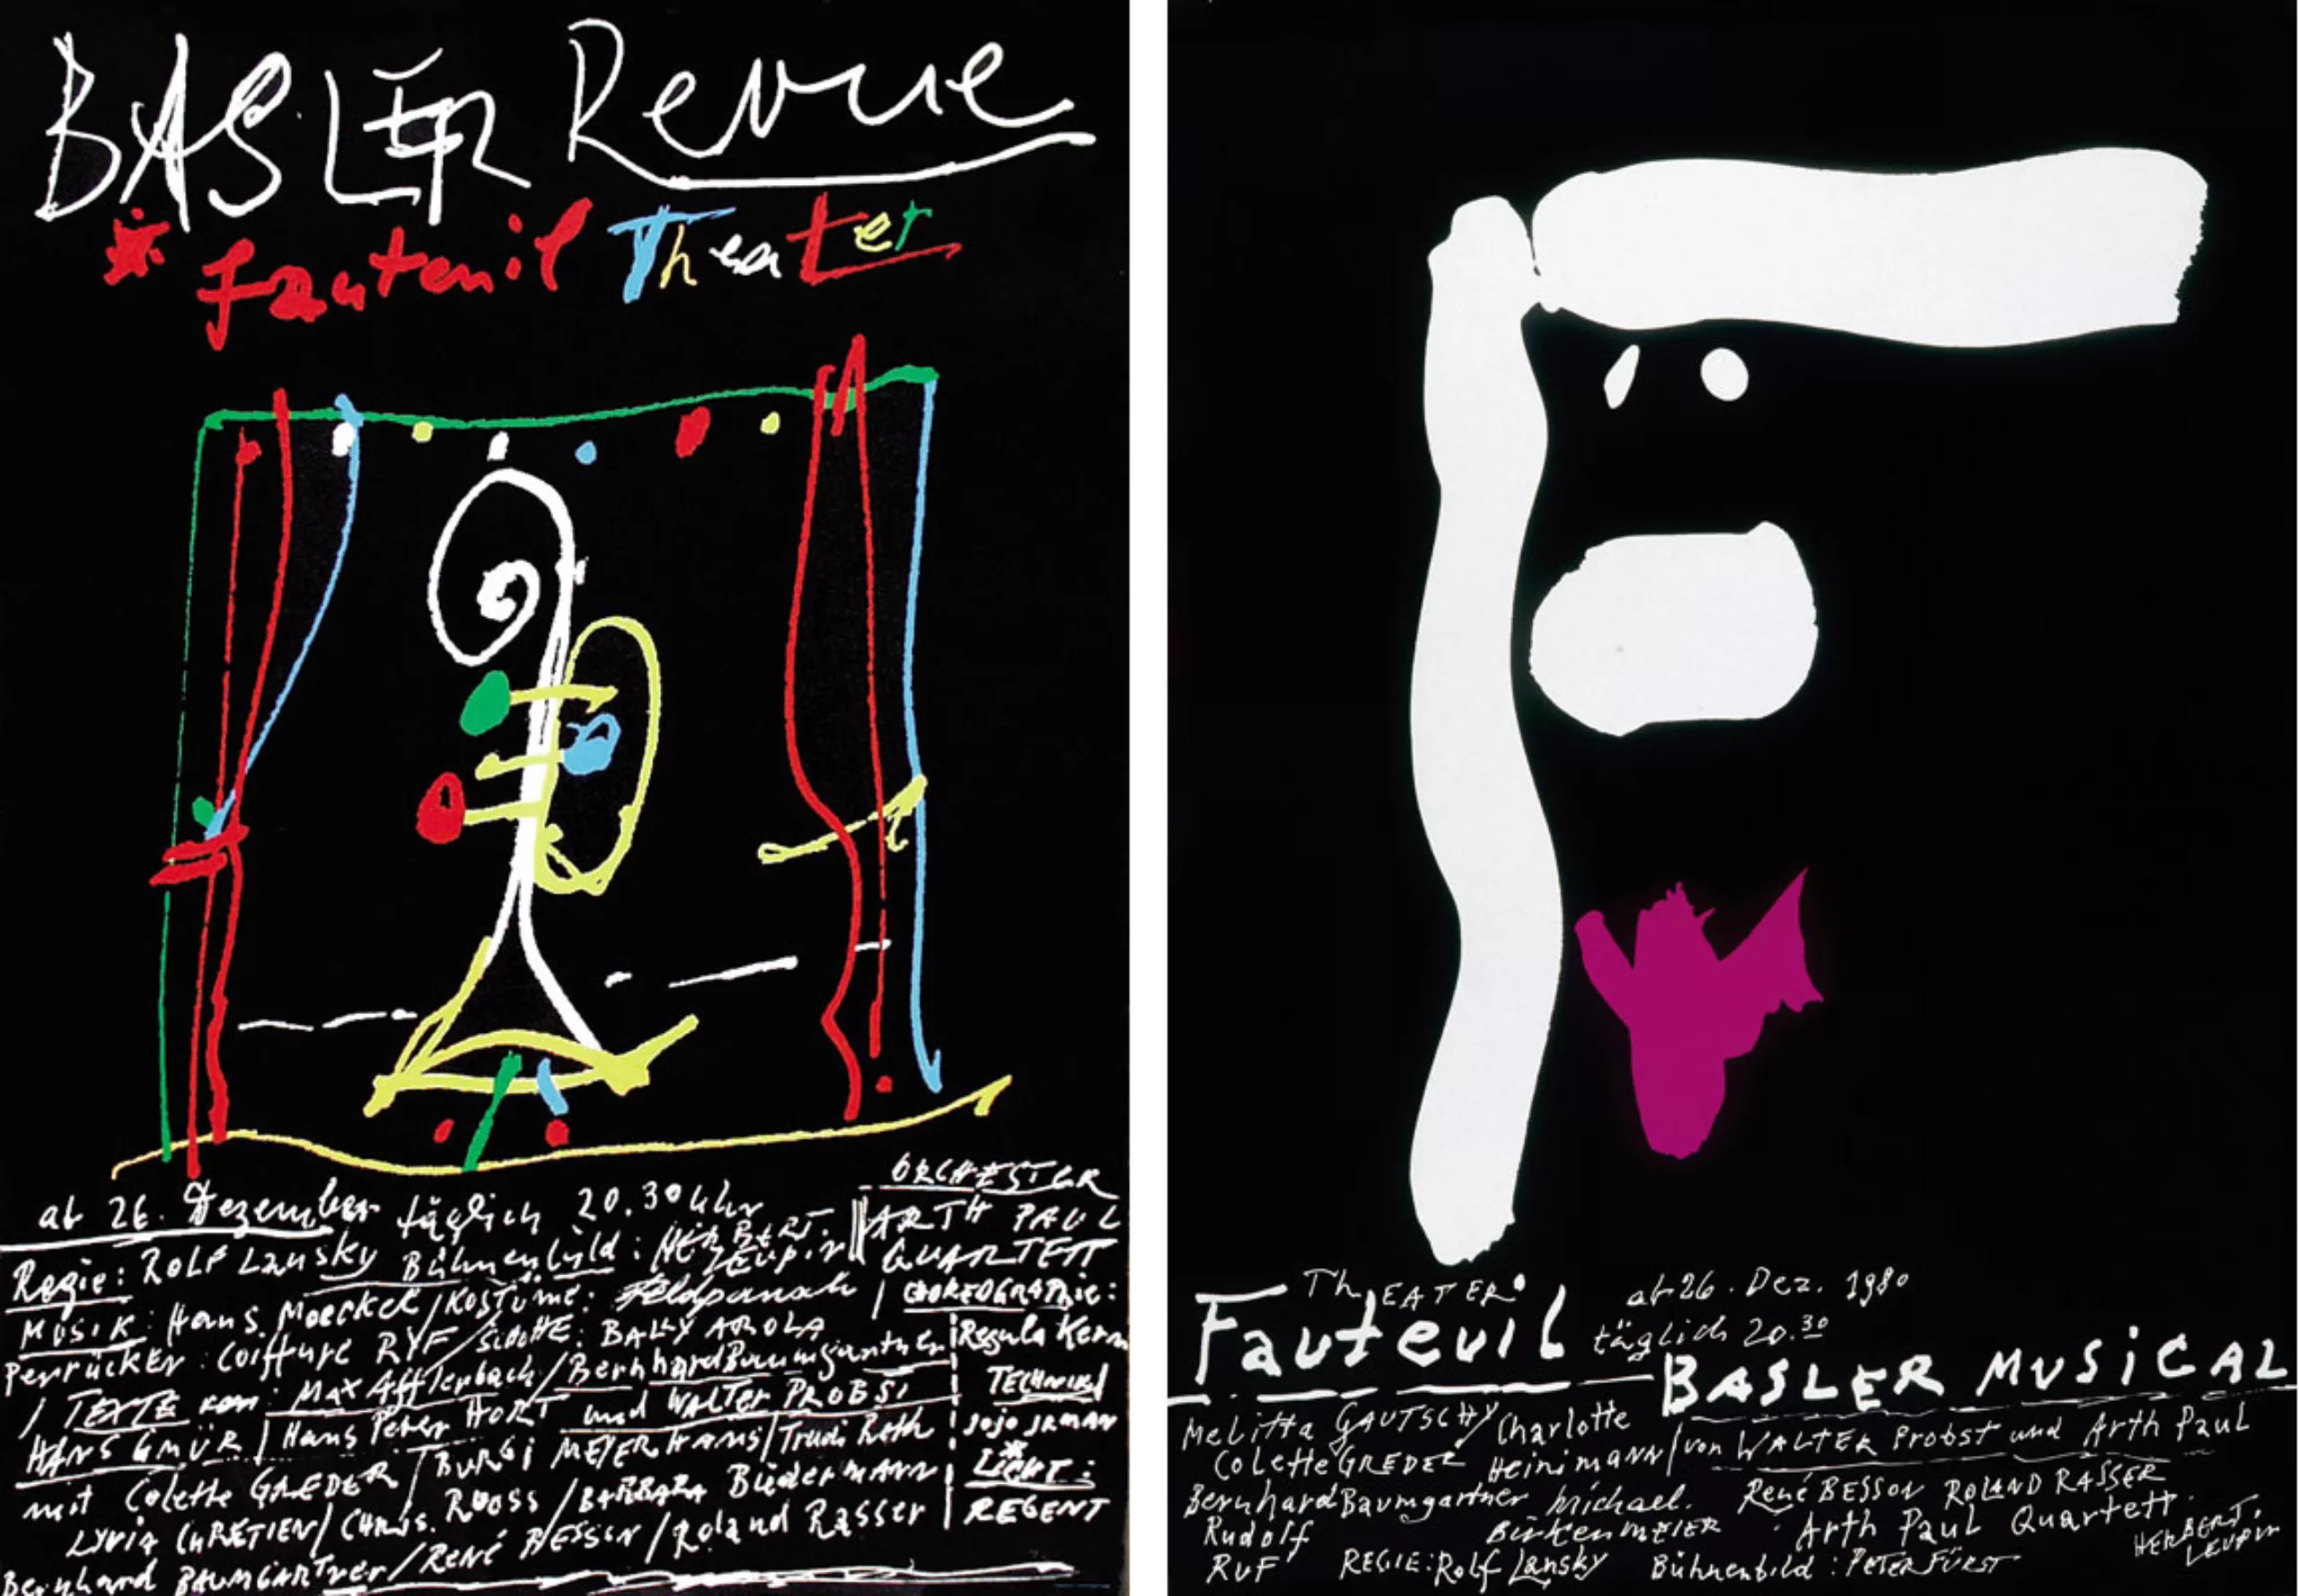 BASLER Revue
* fauteuil Theater
ab 26. Dezember täglich 20.30 Uhr
Regie: ROLF Lansky Bühnenbild: HERBERT LEUPIN
MUSIK: Hans Moeckel / KOSTÜME: Feldpausch
Perrücken: Coiffure RYF / SCHUHE: BALLY AROLA
/ TEXTE von: MAX Afflerbach / Bernhard Baumgartner
HANS GMÜR / Hans Peter HORT und WALTER PROBST
mit Colette GREDER / BURGI MEYER HANS / Trudi Roth
LYRIA CHRÉTIEN / CHRIS. ROOSS / BARBARA BiedeRMANN
Bernhard BAUMGARTner / RENÉ BESSON / Roland Rasser
ORCHESTER
ARTH PAUL
QUARTETT
CHOREOGRAPhie:
Regula Kern
TECHNIK
JoJo JRMAN
LICHT:
REGENT
F
ThEATER
Fauteuil
ab 26. Dez. 1980
täglich 20.30
BASLER MUSiCAL
Melitta GAUTSCHY Charlotte
Colette GREDER Heinimann / von WALTER Probst und Arth Paul
Bernhard Baumgartner Michael. René BESSON ROLAND RASSER
Rudolf BirkenMEIER Arth Paul Quartett.
RUF REGIE: Rolf Lansky Bühnenbild: PETER FÜRST
HERBERT. LEUPIN